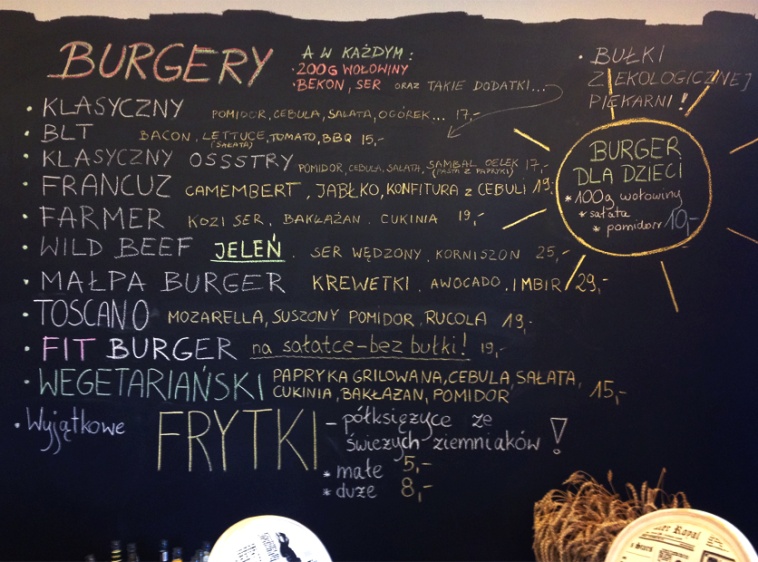 BURGERY
A W KAŻDYM:
• 200G WOŁOWINY
• BEKON, SER ORAZ TAKIE DODATKI...
• BUŁKI
Z EKOLOGICZNEJ
PIEKARNI!
• KLASYCZNY POMIDOR, CEBULA, SAŁATA, OGÓREK... 17,-
• BLT BACON, LETTUCE, TOMATO, BBQ 15,-
(SAŁATA)
• KLASYCZNY OSSSTRY POMIDOR, CEBULA, SAŁATA, SAMBAL OELEK 17,-
(PASTA Z PAPRYKI)
• FRANCUZ CAMEMBERT, JABŁKO, KONFITURA z CEBULI 19,-
• FARMER KOZI SER, BAKŁAŻAN, CUKINIA 19,-
• WILD BEEF JELEŃ, SER WĘDZONY, KORNISZON 25,-
• MAŁPA BURGER KREWETKI, AWOCADO, IMBIR 29,-
• TOSCANO MOZARELLA, SUSZONY POMIDOR, RUCOLA 19,-
• FIT BURGER na sałatce-bez bułki! 19,-
• WEGETARIAŃSKI PAPRYKA GRILOWANA, CEBULA, SAŁATA,
CUKINIA, BAKŁAŻAN, POMIDOR 15,-
• Wyjątkowe FRYTKI – półksiężyce ze
świeżych ziemniaków!
* małe 5,-
* duże 8,-
BURGER
DLA DZIECI
* 100g wołowiny
* sałata
* pomidor 10,-